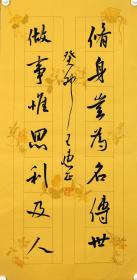 脩身豈為名傳世
做事惟思利及人
癸卯